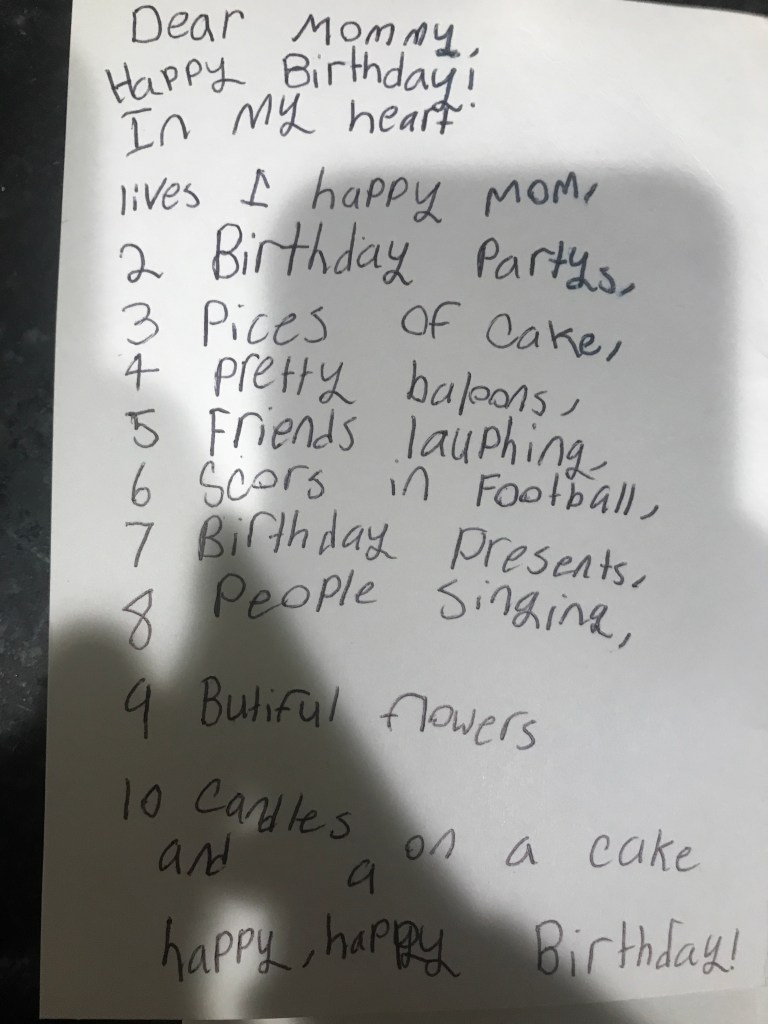 Dear Mommy,
Happy Birthday!
In my heart
lives 1 happy mom,
2 Birthday Partys,
3 Pices of cake,
4 pretty baloons,
5 Friends lauphing,
6 Scors in Football,
7 Birthday presents,
8 People singing,
9 Butiful flowers
10 Candles on a cake
and a
happy, happy Birthday!